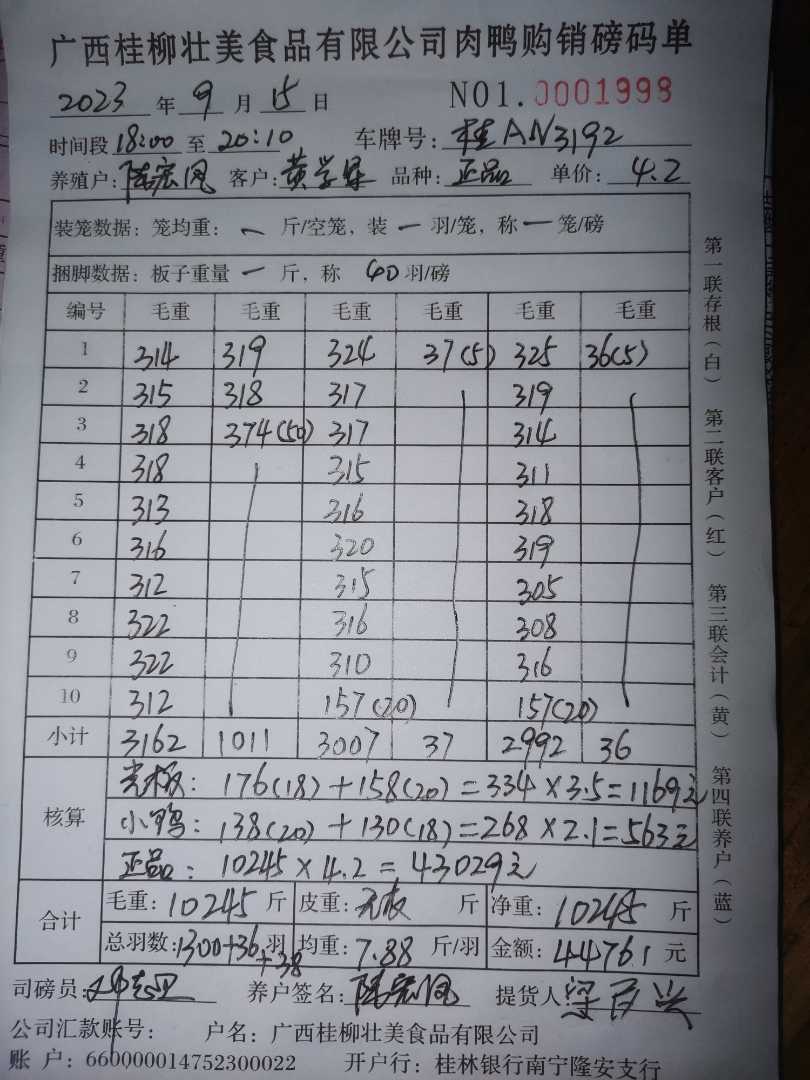 广西桂柳壮美食品有限公司肉鸭购销磅码单
2023 年 9 月 15 日 NO1.0001998
时间段 18:00 至 20:10 车牌号: 桂AN3192
养殖户: 陆宏凤 客户: 黄学星 品种: 正品 单价: 4.2
装笼数据: 笼均重: 一 斤/空笼, 装 一 羽/笼, 称 一 笼/磅
捆脚数据: 板子重量 一 斤, 称 40 羽/磅
编号 毛重 毛重 毛重 毛重 毛重 毛重
1 314 319 324 37(5) 325 36(5)
2 315 318 317 319
3 318 374(50) 317 314
4 318 315 311
5 313 316 318
6 316 320 319
7 312 315 305
8 322 316 308
9 322 310 316
10 312 157(20) 157(20)
小计 3162 1011 3007 37 2992 36
核算
光板: 176(18)+158(20)=334×3.5=1169元
小鸭: 138(20)+130(18)=268×2.1=563元
正品: 10245×4.2=43029元
合计
毛重: 10245 斤 皮重: 无板 斤 净重: 10245 斤
总羽数: 1300+36+38 羽 均重: 7.88 斤/羽 金额: 44761 元
司磅员: 养户签名: 陆宏凤 提货人: 梁百兴
公司汇款账号: 户名: 广西桂柳壮美食品有限公司
账 户: 660000014752300022 开户行: 桂林银行南宁隆安支行
第一联存根(白) 第二联客户(红) 第三联会计(黄) 第四联养户(蓝)